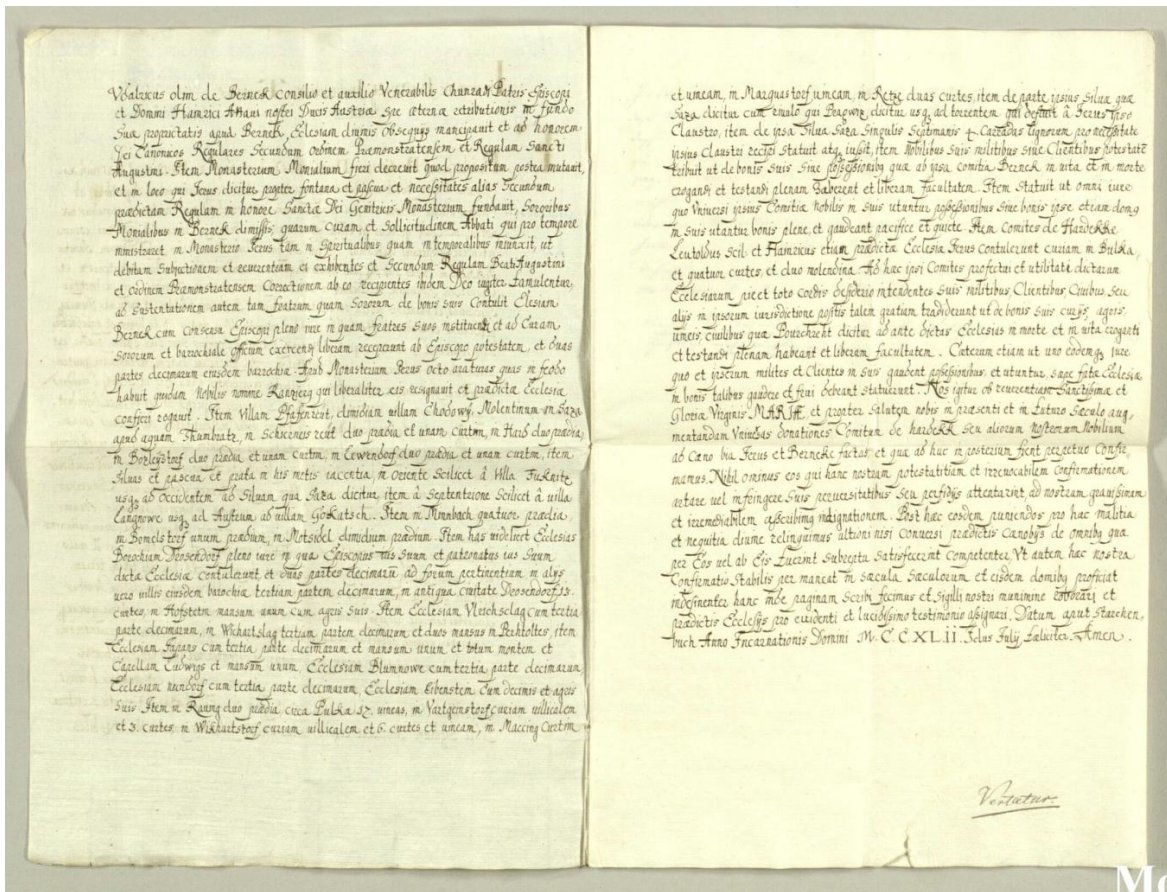 Vdalricus olim de Bernek consilio et auxilio Venerabilis Chunradi Patris Episcopi
et Domini Hainrici Attaui nostri Ducis Austria spe æterna retributionis in fundo
Sua proprietatis apud Bernek, Eclesiam diuinis Obsequys mancipauit et ad honorem
Dei Canonicos Regulares Secundum ordinem Præmonstratensem et Regulam Sancti
Augustini. Item Monasterium Monialium fieri decreuit quod propositum postea mutauit,
et in loco qui Jerus dicitur propter fontana et pascua et necessitates alias Secundum
prædictam Regulam in honore Sanctæ Dei Genitricis Monasterium fundauit, Sororibus
Monialibus in Bernek dimissis; quarum curam et Sollicitudinem Abbati qui pro tempore
ministraret in Monasterio Jerus tam in Spiritualibus quam in temporalibus iniunxit, ut
debitam Subjectionem et reuerentiam ei exhibentes et Secundum Regulam Beati Augustini
et ordinem Præmonstratensem Coerctionem ab eo recipientes ibidem Deo iugiter famulentur,
ad sustentationem autem tam fratrum quam Sororum de bonis suis Contulit Elesiam
Bernek cum consensu Episcopi pleno iure in quam fratres suos instituendi et ad Curam
Sororum et barrochiale officium exercendi liberam receperunt ab Episcopo potestatem, et duas
partes decimarum eiusdem barrochia. Apud Monasterium Jerus octo araturas quas in feodo
habuit quidam nobilis nomine Ranzierg qui liberaliter eis resignauit et prædicta Ecclesia
conferri rogauit. Item Villam Pfafenreut, dimidiam uillam Chodowy, Molentinum in Saza
apud aquam Thumbratz, in Schierneis reut duo prædia et unam curtim, in Hard duo prædia,
in Bozleystorf duo prædia et unam Curtim, in Lewendorf duo prædia et unam curtim, item
Siluas et pascua et prata in his metis iacentia, in Oriente Scilicet â Villa Fuknitz
usq ad Occidentem ad Siluam qua Saza dicitur, item à Septentrione Scilicet â uilla
Langnowe usq ad Austrum ad uillam Goskatsch. Item in Minnbach quatuor prædia,
in Bomelstorf unum prædium, in Motsidel dimidium prædium. Item has uidelicet Ecclesias
Barochiam Drosendorf pleno iure in qua Episcopus ius suum et patronatus ius Suum
dicta Ecclesia contulerunt, et duas partes decimarũ ad forum pertinentium in alys
uero uillis eiusdem barochia tertiam partem decimarum, in antiqua ciuitate Drosendorf 13.
curtes, in Hofstetn mansum unum cum agris suis. Item Ecclesiam Vleichsclag cum tertia
parte decimarum, in Wichartslag tertiam partem decimarum et duos mansus in Berktoltes, item
Ecclesiam Fapans cum tertia parte decimarum et mansum unum et totum montem et
Capellam Ludwigs et mansum unum Ecclesiam Blumnowe cum tertia parte decimarum
Ecclesiam niundorf cum tertia parte decimarum, Ecclesiam Eibenstem Cum decimis et agris
Suis. Item in Raning duo prædia circa Pulka 17. uineas, in Vartgeinstorf curiam uillicalem
et 3. curtes, in Wikhartstorf curiam uillicalem et 6. curtes et uineam, in Maccing Curtim
et uineam, in Marquastorf uineam, in Retze duas curtes, item de parte ipsius Silua quæ
Saza dicitur cum riuulo qui Pragown dicitur usq ad torrentem qui defluit â Jerus ipso
Claustro, item de ipsa Silua Saza Singulis Septimanis 4. Carradas lignorum pro necessitate
ipsius Claustri recipi Statuit atq iussit, item nobilibus Suis militibus siue Clientibus potestatẽ
tribuit ut de bonis Suis Siue possessionibq qua ab ipsa Comitia Bernek in uita et in morte
erogandi et testandi plenam haberent et liberam facultatem. Item Statuit ut omni iure
quo Vniuersi ipsius Comitia nobiles in suis utuntur possessionibus siue bonis ipse etiam domq
in suis utantur bonis plene, et gaudeant pacifice et quiete. Item Comites de Hardekke
Leutoldus Scil: et Hainricus etiam prædicta Ecclesia Jerus Contulerunt curiam in Bulka,
et quatuor curtes, et duo molendina. Ad hæc ipsi Comites profectui et utilitati dictarum
Ecclesiarum pie et toto cordis desiderio intendentes suis militibus, Clientibus, Ciuibus, seu
alijs in ipsorum iurisdictione positis talem gratiam tradiderunt ut de bonis suis curijs, agris,
uineis, ciuilibus quæ Pourchrecht dicitur ad ante dictas Ecclesias in morte et in uita erogandi
et testandi plenam habeant et liberam facultatem. Cæterum etiam ut uno eodemq iure
quo et ipsorum milites et Clientes in suis gaudent possessionibus, et utuntur, sæpe fata Ecclesia
in bonis talibus gaudere et frui debeant statuerunt. Nos igitur ob reuerentiam Sanctissimæ et
Gloriæ Virginis MARIÆ et propter Salutem nobis in præsenti et in futuro Sæculo aug,
mentandam Vniuersas donationes Comitum de hardekk seu aliorum nostrorum Nobilium
ad Cæno bia Jerus et Berneke factas, et qua ad huc in posterium fient perpetuo Confir,
mamus. Nihil ominus eos qui hanc nostram potestatitiam et irreuocabilem confirmationem
artare uel infringere Suis peruersitatibus seu perfidijs attentarint, ad nostram grauissimam
et irremediabilem asscribimq indignationem. Post hæc eosdem puniendos pro hac malitia
et nequitia diuinæ relinquimus ultioni nisi conuersi prædictis Cænobys de omnibq quæ
per Eos uel ab Eis fuerint Subreptu Satisfecerint Competenter, Vt autem hæc nostra
Confirmatio Stabilis per maneat in sæcula Sæculorum et eisdem domibq proficiat
indesinenter hanc inde paginam Scribi fecimus et Sigilli nostri munimine roborari et
prædictis Ecclesys pro euidenti et lucidissimo testimonio assignari. Datum aput Starchen,
buch Anno Incarnationis Domini M. CCXLII. Idus Julij fæliciter. Amen.
Vertatur.